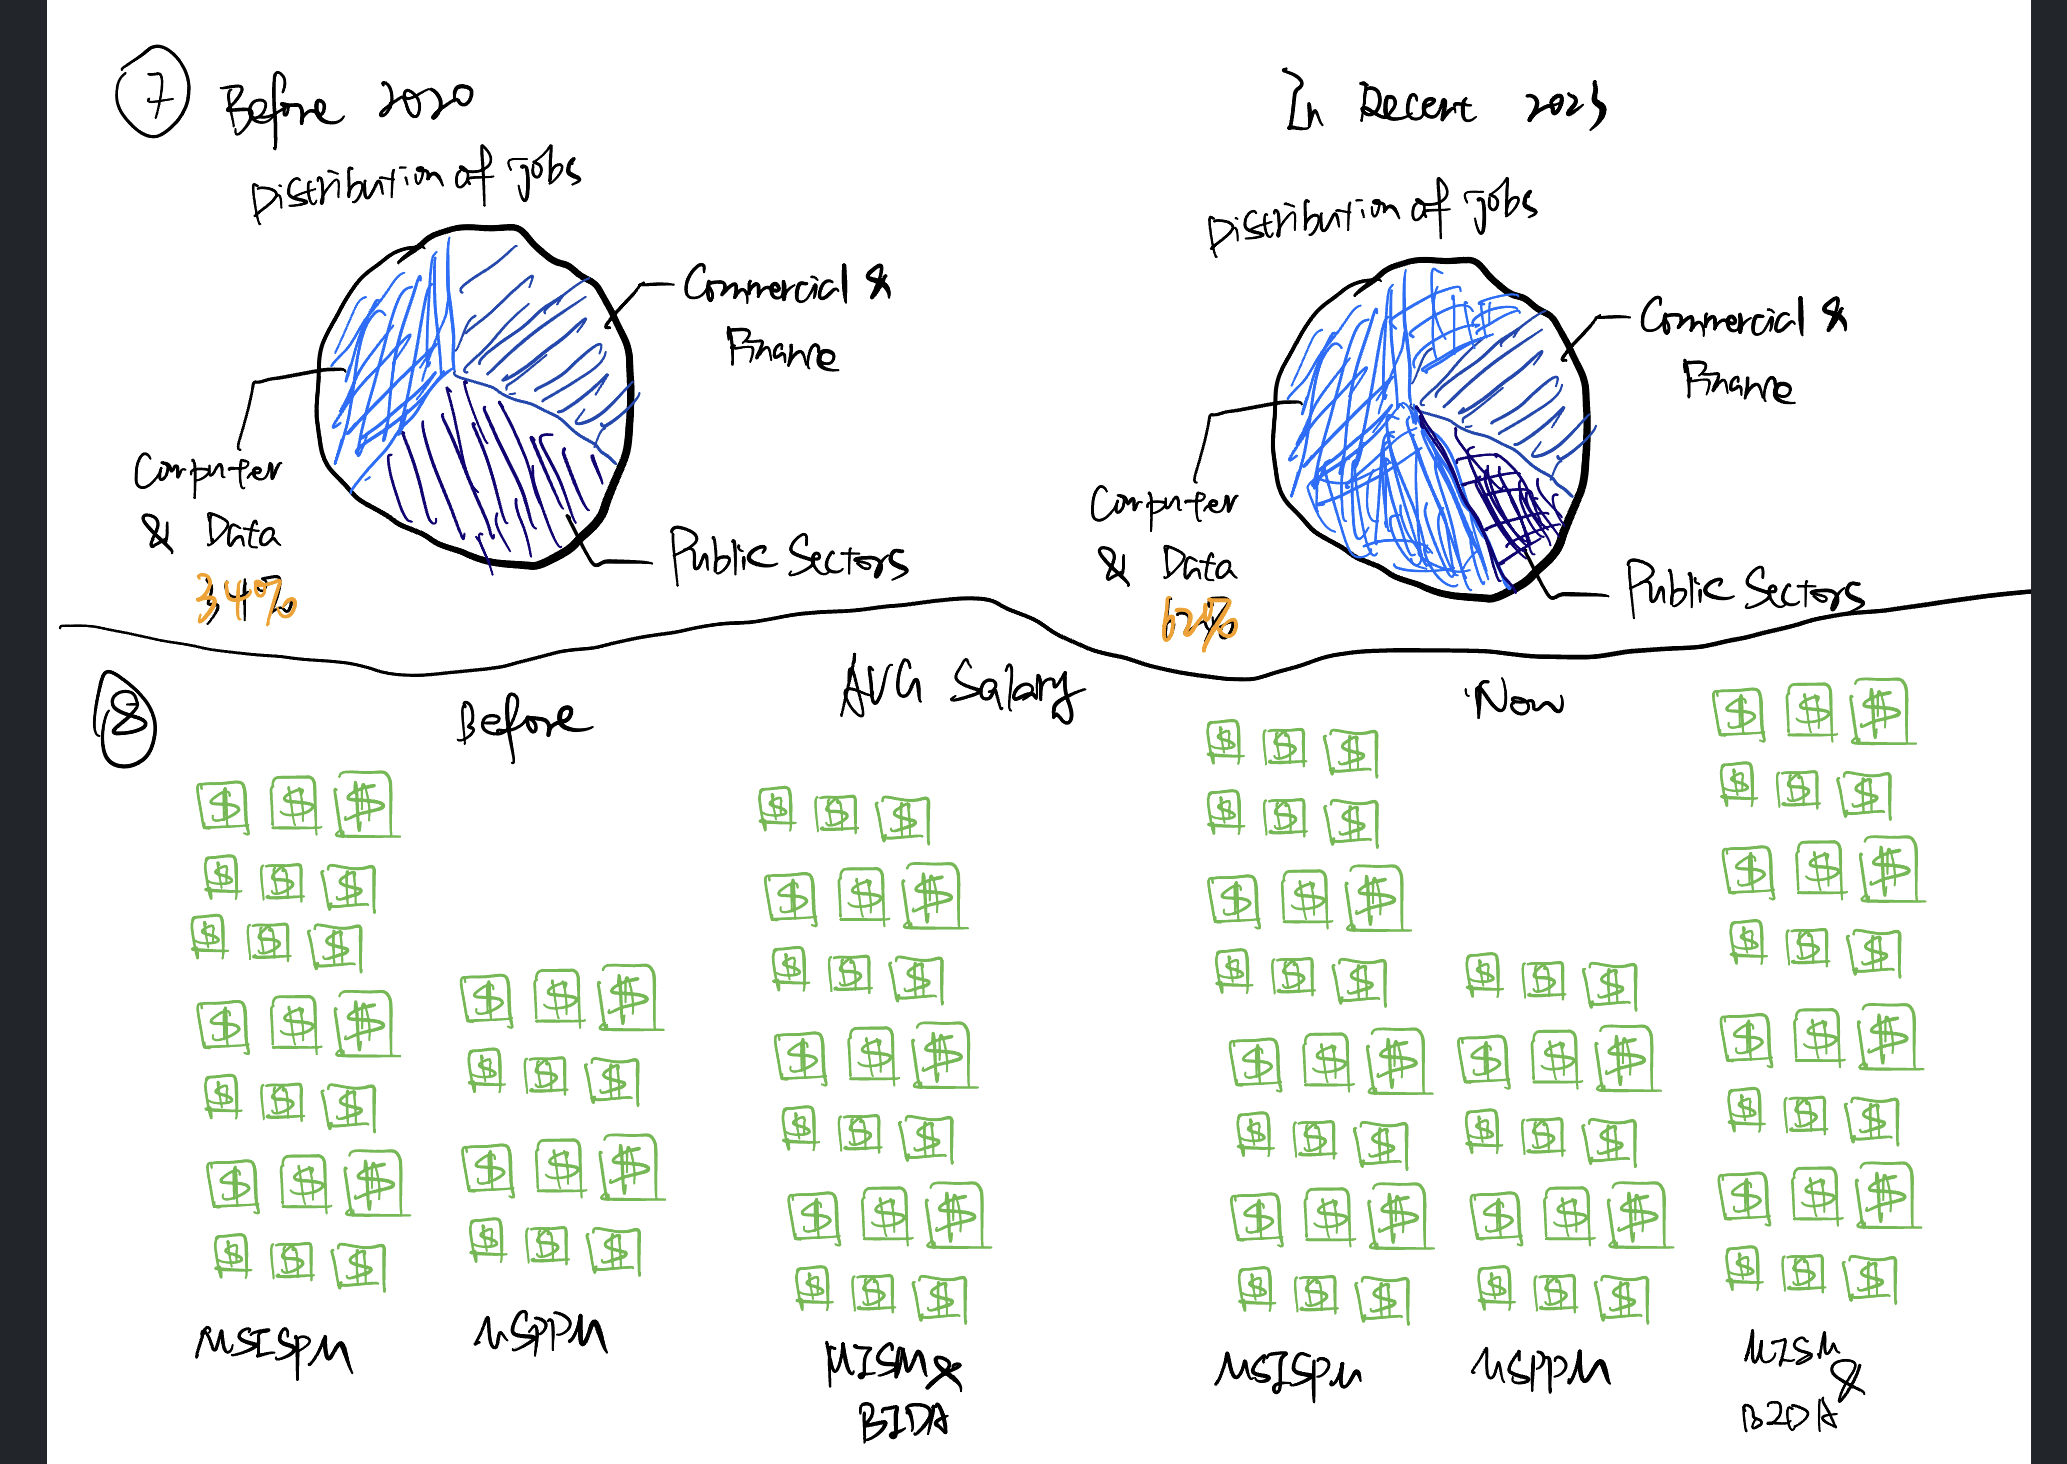 7 Before 2020
Distribution of jobs
Commercial &
Finance
Computer
& Data
34%
Public Sectors
In Recent 2023
Distribution of jobs
Commercial &
Finance
Computer
& Data
62%
Public Sectors
8
AVG Salary
Before
Now
$ $ $ $ $ $
$ $ $ $ $ $
$ $ $ $ $ $ $ $ $ $ $ $
$ $ $ $ $ $ $ $ $ $ $ $
$ $ $ $ $ $ $ $ $ $ $ $ $ $ $
$ $ $ $ $ $ $ $ $ $ $ $ $ $ $ $ $ $
$ $ $ $ $ $ $ $ $ $ $ $ $ $ $ $ $ $
$ $ $ $ $ $ $ $ $ $ $ $ $ $ $ $ $ $
$ $ $ $ $ $ $ $ $ $ $ $ $ $ $ $ $ $
MSISPM
MSPPM
MISM &
BIDA
MSISPM
MSPPM
MISM
&
BIDA